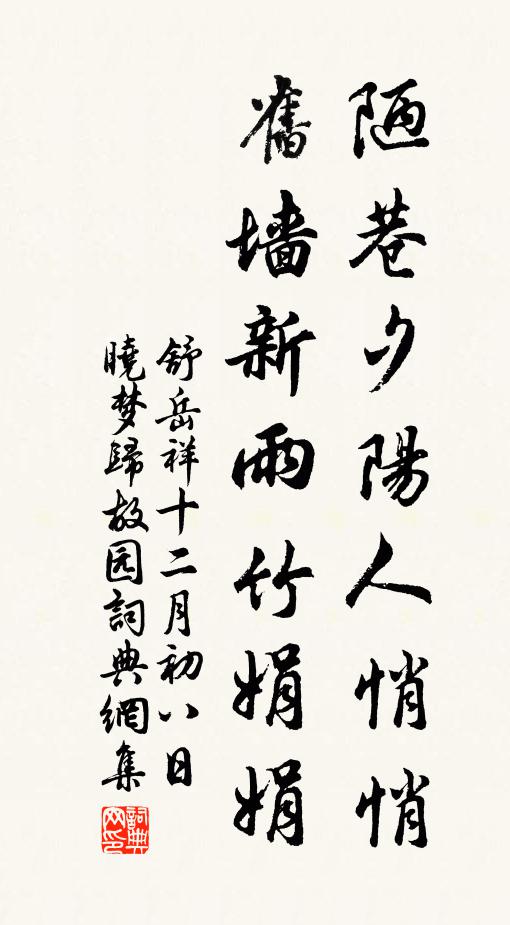 陋巷夕陽人悄悄
舊墙新雨竹娟娟
舒岳祥十二月初八日
曉梦歸故园詞典網集
詞典
网印